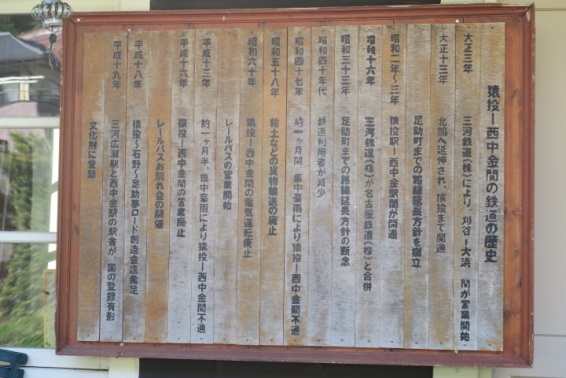 猿投ー西中金間の鉄道の歴史
大正三年　三河鉄道(株)により、刈谷ー大浜　間が営業開始
大正十三年　北部へ延伸され、猿投まで開通
足助町までの路線延長方針を確立
昭和二年〜三年　猿投駅ー西中金駅間が開通
昭和十六年　三河鉄道(株)が名古屋鉄道(株)と合併
昭和三十三年　足助町までの路線延長方針の断念
昭和四十年代　鉄道利用者が減少
昭和四十七年　約一ヶ月間、集中豪雨により猿投ー西中金間不通
昭和五十八年　粘土などの貨物輸送の廃止
昭和六十年　猿投ー西中金間の電気運転廃止
レールバスの営業開始
平成十二年　約一ヶ月半、集中豪雨により猿投ー西中金間不通
平成十六年　猿投ー西中金間の営業廃止
レールバスお別れ会の開催
平成十八年　猿投〜石野〜足助夢ロード創造会議発足
平成十九年　三河広瀬駅と西中金駅の駅舎が、国の登録有形
文化財に登録